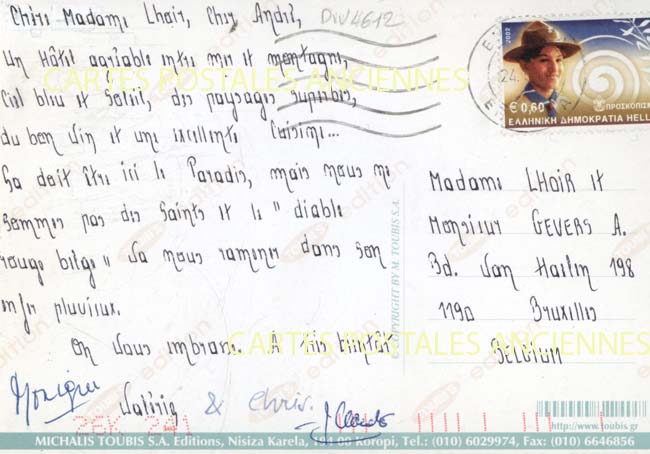 Chère Madame Lhoir, Cher André,
DIV4612
Un Hôtel agréable entre mer et montagne,
Ciel bleu et Soleil, des paysages superbes,
du bon vin et une excellente Cuisine...
Ça doit être ici le Paradis, mais nous ne
sommes pas des Saints et le " diable
rouge belge " va nous ramener dans son
enfer pluvieux.
On vous embrasse. A très bientôt
Monique
Valérie & Chris.
2002
€ 0,60
ΠΡΟΣΚΟΠΙΣΜ
ΕΛΛΗΝΙΚΗ ΔΗΜΟΚΡΑΤΙΑ HELL
24
Madame LHOIR et
Monsieur GEVERS A.
Bd. Van Haelen 198
1190 Bruxelles
BELGIUM
© COPYRIGHT BY M. TOUBIS S.A.
CARTES POSTALES ANCIENNES
CARTES POSTALES ANCIENNES
edition
http://www.toubis.gr
MICHALIS TOUBIS S.A. Editions, Nisiza Karela, 194 00 Koropi, Tel.: (010) 6029974, Fax: (010) 6646856